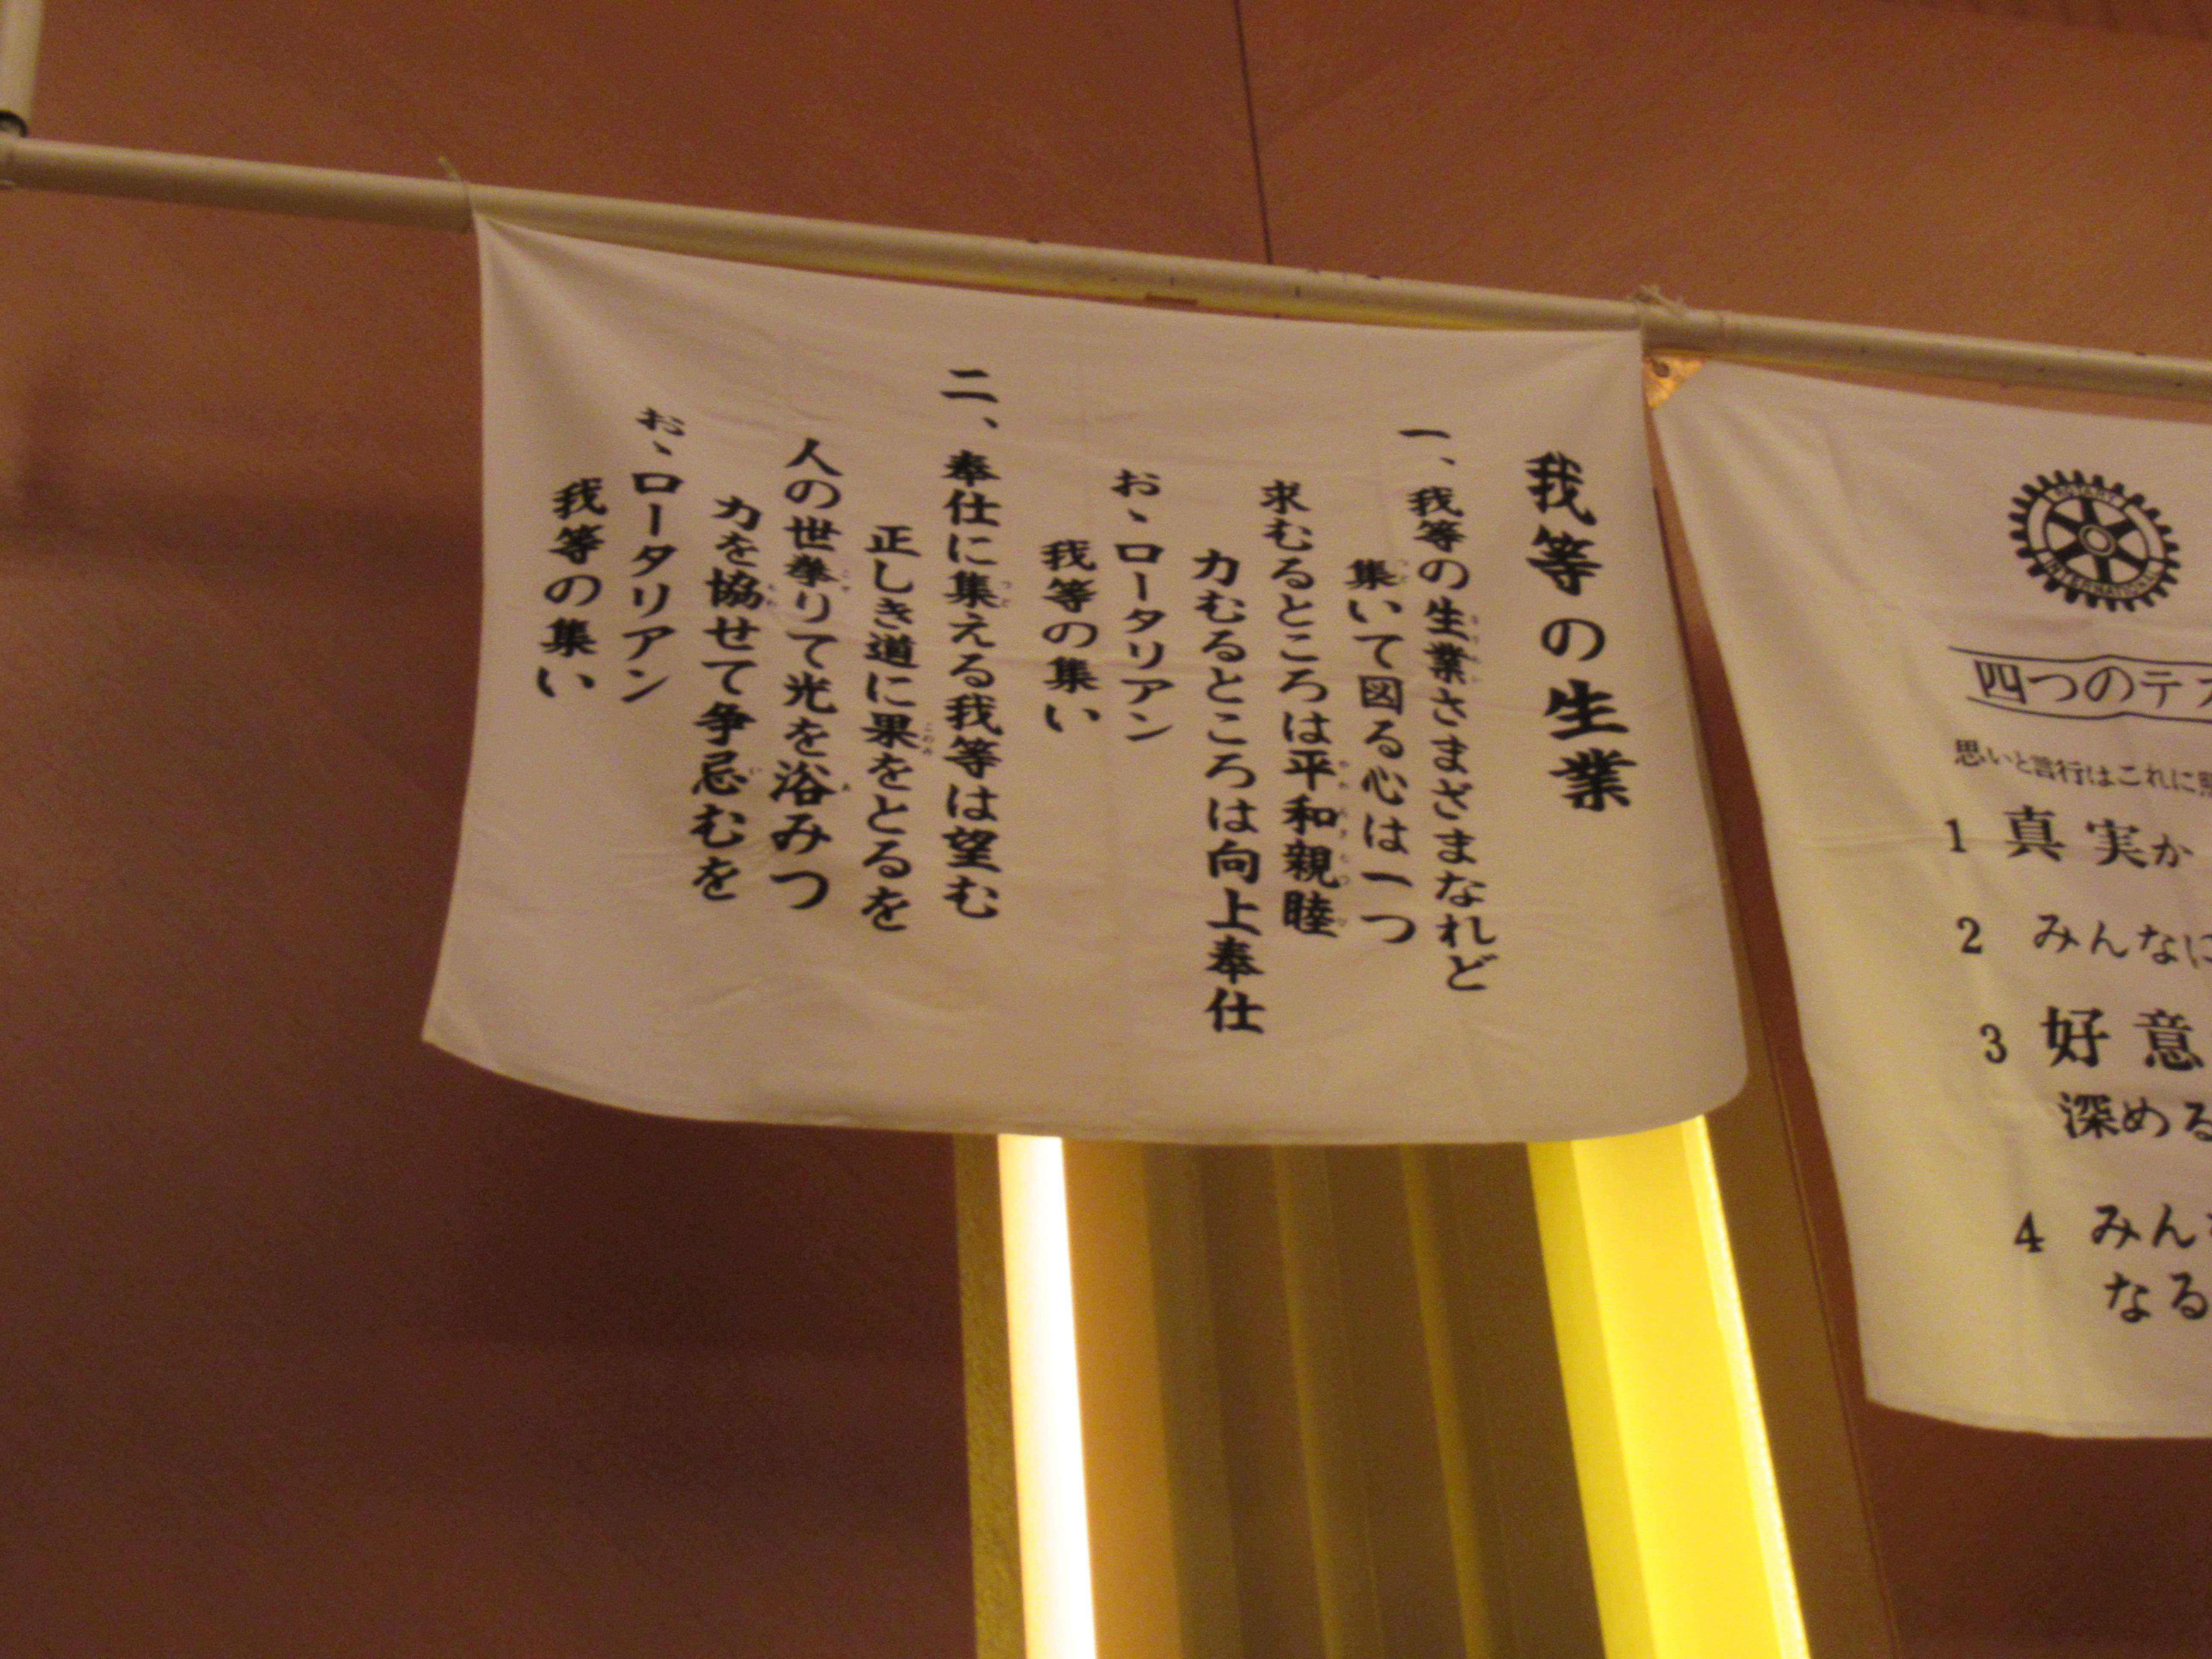 我等の生業
一、我等の生業さまざまなれど
集いて図る心は一つ
求むるところは平和親睦
力むるところは向上奉仕
おゝロータリアン
我等の集い
二、奉仕に集える我等は望む
正しき道に果をとるを
人の世挙りて光を浴みつ
力を協せて争忌むを
おゝロータリアン
我等の集い
ROTARY
INTERNATIONAL
四つのテス
思いと言行はこれに照
1 真実か
2 みんなに
3 好意
深める
4 みんな
なる